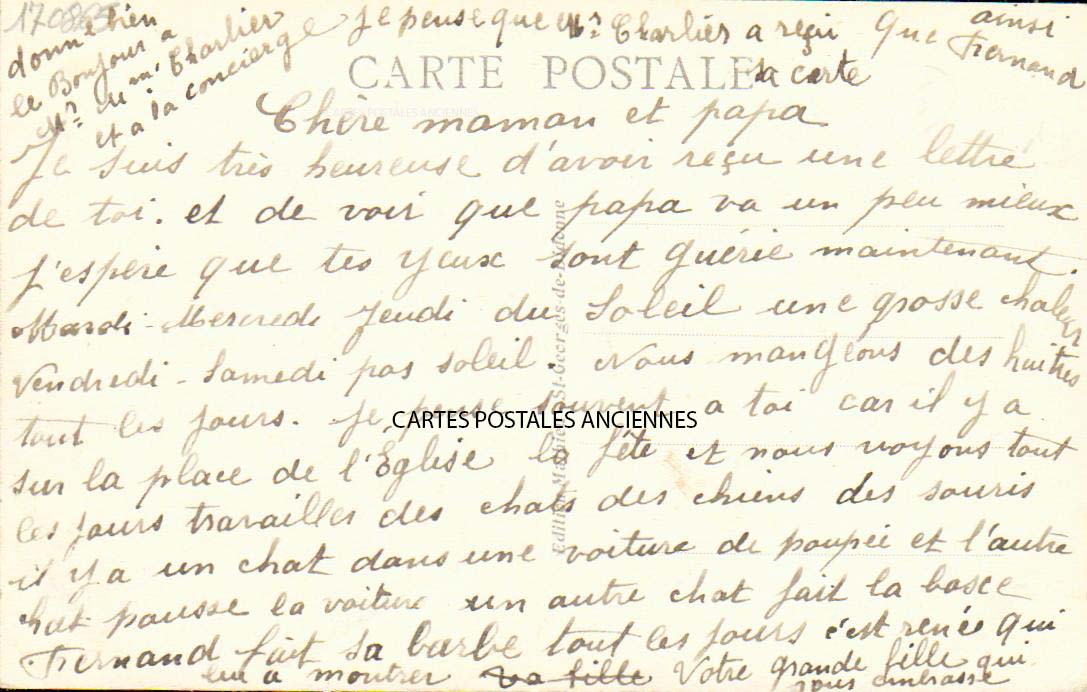 170865
donne bien
le Bonjour a
Mr et mme Charlier
et a la concierge
je pense que Mr Charlier a reçu
sa carte
que ainsi
Fernand
CARTE POSTALE
CARTES POSTALES ANCIENNES
Chère maman et papa
Je suis très heureuse d'avoir reçu une lettre
de toi. et de voir que papa va un peu mieux
j'espère que tes yeux sont guérie maintenant.
Mardi - Mercredi Jeudi du Soleil une grosse chaleur
Vendredi - Samedi pas soleil. Nous mangeons des huitres
tout les jours. Je pense souvent a toi car il y a
CARTES POSTALES ANCIENNES
sur la place de l'Eglise la fête et nous voyons tout
les jours travailler des chats des chiens des souris
il y a un chat dans une voiture de poupée et l'autre
chat pousse la voiture un autre chat fait la bosce
Fernand fait sa barbe tout les jours c'est renée qui
lui a montrer Va fille Votre grande fille qui
vous embrasse
St-Georges-de-Didonne